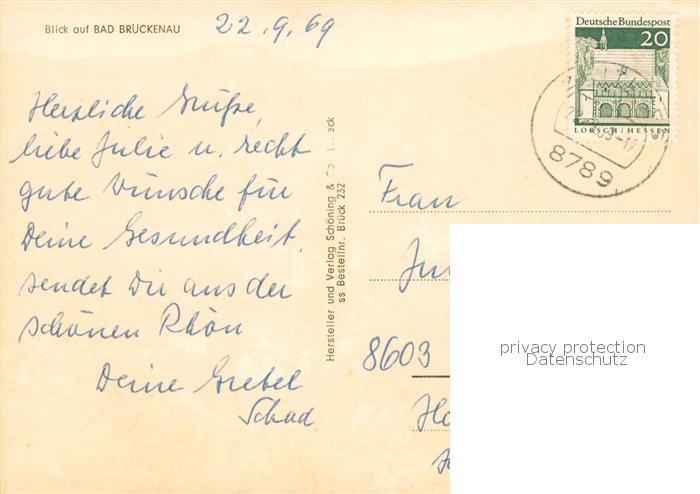 Blick auf BAD BRÜCKENAU
22.9.69
Herzliche Grüße,
liebe Julie u. recht
gute Wünsche für
Deine Gesundheit,
sendet Dir aus der
schönen Rhön
Deine Gretel
Schad
Hersteller und Verlag Schöning & Co
ss Bestellnr. Brück 232
Deutsche Bundespost
20
LORSCH/HESSEN
8789
Frau
8603
privacy protection
Datenschutz